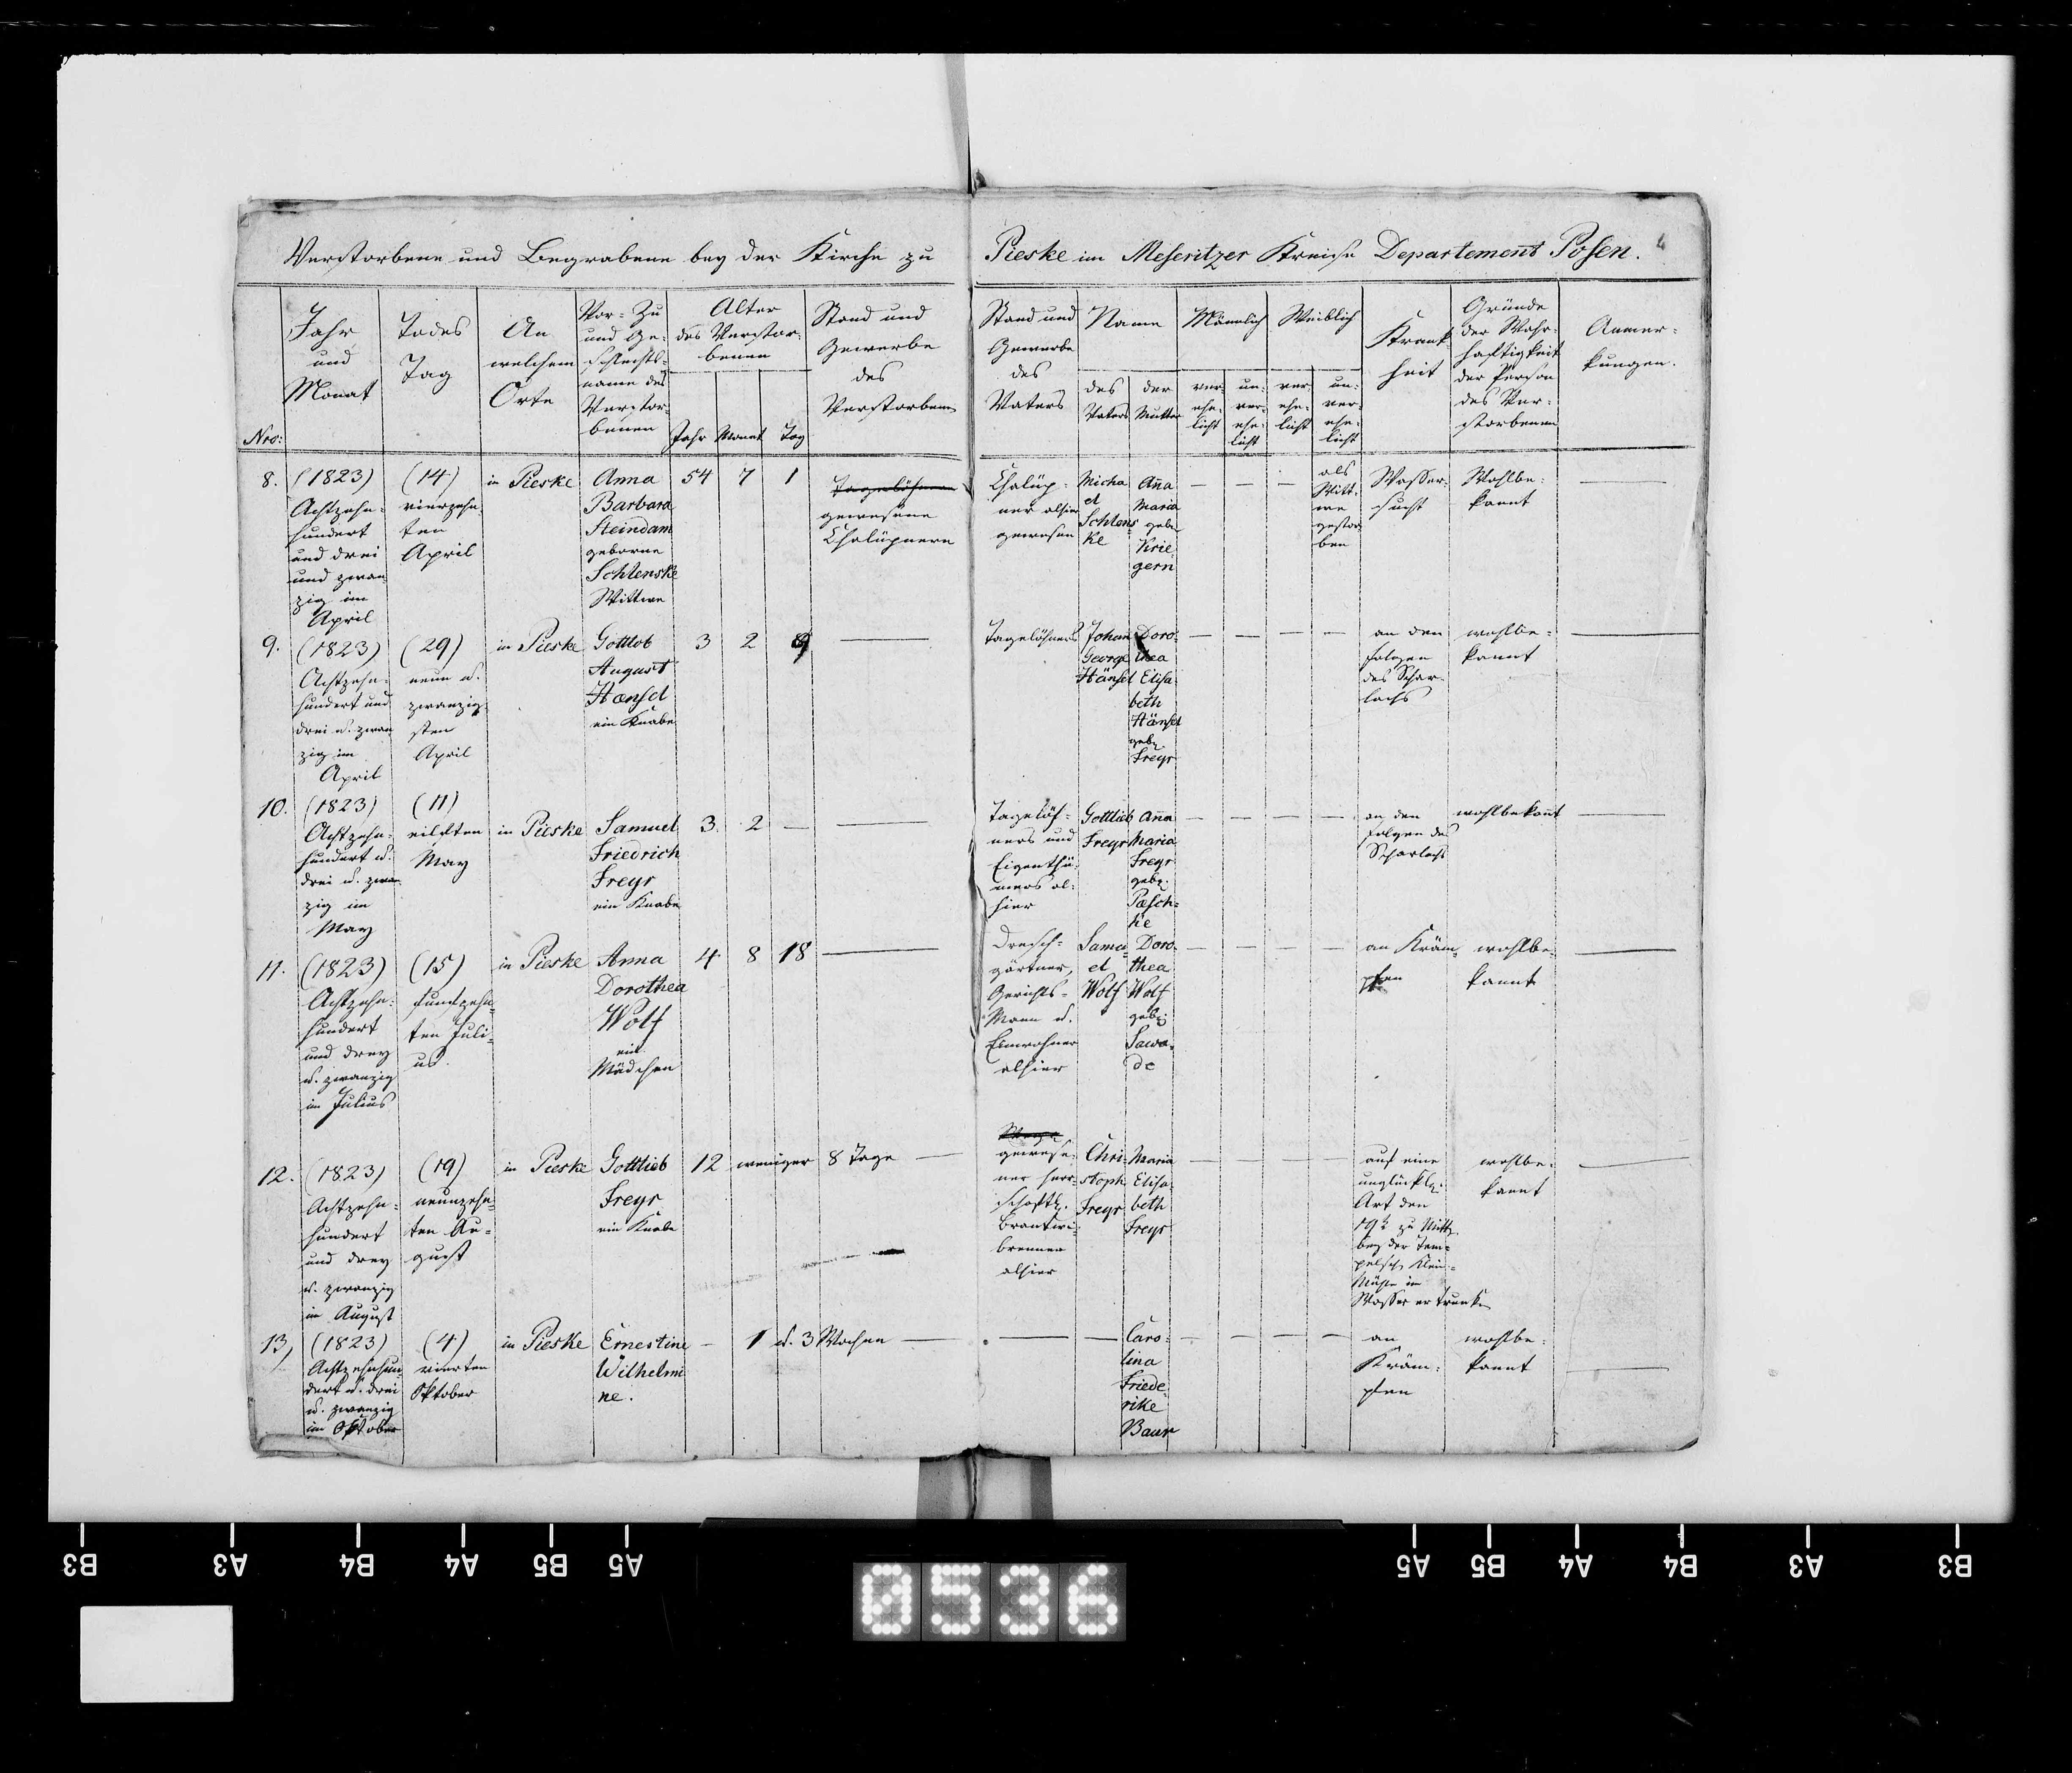 Verstorbene und Begrabene bey der Kirche zu Pieske im Meseritzer Kreise Departement Posen.
4
Nro:
Jahr
und
Monat
Todes
Tag
An
welchem
Orte
Vor- Zu
und Ge-
schlechts-
name des
Verstor-
benen
Alter
des Verstor-
benen
Jahr Monat Tag
Stand und
Gewerbe
des
Verstorbenen
Stand und
Gewerbe
des
Vaters
Name
des
Vaters
der
Mutter
Männlich
ver-
ehe-
licht
un-
ver-
ehe-
licht
Weiblich
ver
ehe-
licht
un-
ver-
ehe-
licht
Krank-
heit
Gründe
der Wahr-
haftigkeit
der Person
des Ver-
storbenen
Anmer-
kungen.
8.
(1823)
Achtzehn-
hundert
und drei
und zwan
zig im
April
(14)
vierzehn
ten
April
in Pieske
Anna
Barbara
Steindam
geborne
Schlenske
Wittwe
54 7 1
Tagelöhner
gewesene
Chalüpnern
Chalüp-
ner alhier
gewesen
Micha
el
Schlens
ke
Anna
Maria
geb.
Krie-
gern
— — -
als
Witt-
we
gestor
ben
Wasser-
sucht
Wohlbe-
kannt
—
9.
(1823)
Achtzehn-
hundert und
drei u. zwan
zig im
April
(29)
neun u.
zwanzig-
sten
April
in Pieske
Gottlob
August
Hænsel
ein Knabe
3 2 9
—
Tagelöhners
Johan
George
Hänsel
Doro-
thea
Elisa-
beth
Hänsel
geb.
Freyr
— — — —
an den
folgen
des Schar-
lachs
wohlbe-
kannt
—
10.
(1823)
Achtzehn-
hundert u.
drei u. zwan
zig im
May
(11)
eilften
May
in Pieske
Samuel
Friedrich
Freyr
ein Knabe
3. 2 —
—
Tagelöh-
ners und
Eigenthü-
mers al-
hier
Gottlieb
Freyr
Anna
Maria
Freyr
geb.
Pæsch-
ke
— — — —
an den
folgen des
Scharlachs
wohlbekannt
—
11.
(1823)
Achtzehn-
hundert
und drey
u. zwanzig
im Julius
(15)
funfzehn-
ten Juli-
us.
in Pieske
Anna
Dorothea
Wolf
ein
Mädchen
4. 8 18
—
Dresch-
gärtner,
Gerichts-
Mann u.
Einwohner
alhier
Samu-
el
Wolf
Doro-
thea
Wolf
geb.
Sawa-
de
— — — —
an Kräm-
pfen
wohlbe-
kannt
—
12.
(1823)
Achtzehn-
hundert
und drey
u. zwanzig
im August
(19)
neunzehn-
ten Au-
gust
in Pieske
Gottlieb
Freyr
ein Knabe
12 weniger 8 Tage —
gewese-
ner herr-
schaftl.
Brantwein-
brenner
alhier
Chri-
stoph
Freyr
Maria
Elisa-
beth
Freyr
— — — —
auf eine
unglückl.
Art den
19t. zu Mitt.
bey der Tem-
pelsch. Klein-
Mühle im
Wasser ertrunken
wohlbe-
kannt
—
13,
(1823)
Achtzehnhun-
dert u. drei
u. zwanzig
im Oktober
(4)
vierten
Oktober
in Pieske
Ernestine
Wilhelmi
ne.
— 1 u. 3 Wochen —
— —
Caro-
lina
Friede
rike
Baur
— — — —
an
Kräm-
pfen
wohlbe-
kannt
—
B3 A3 B4 A4 B5 A5 A5 B5 A4 B4 A3 B3
0536